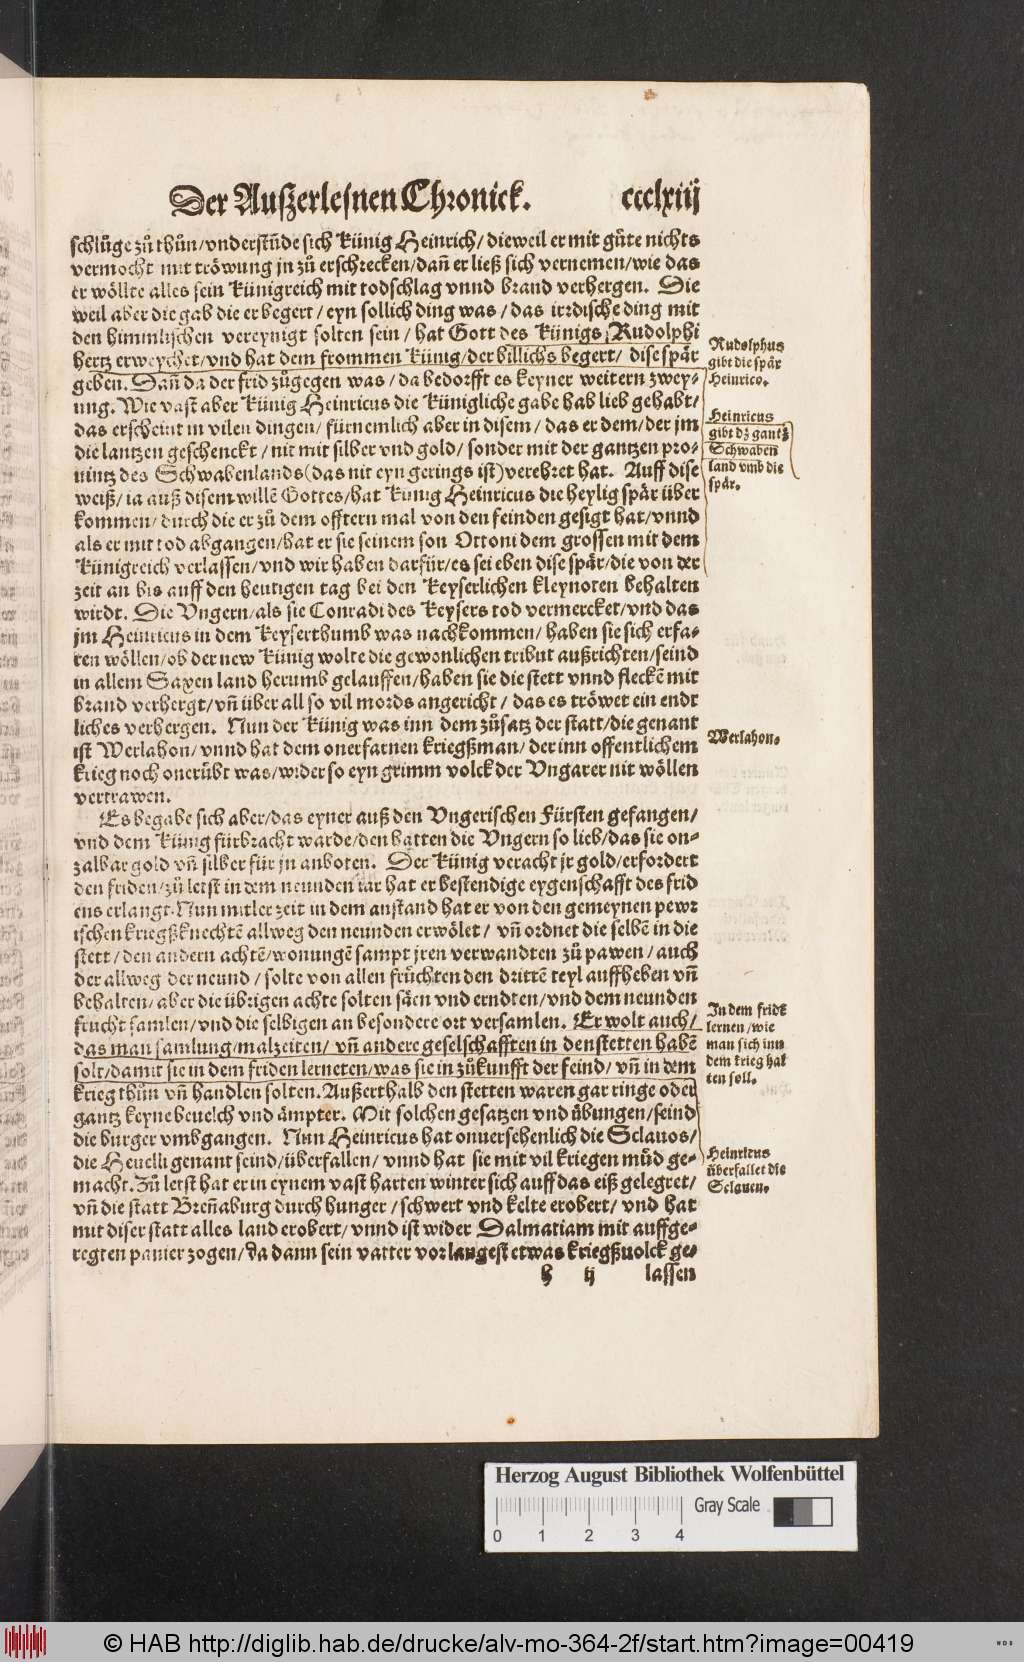 Der Außerlesnen Chronick. ccclxiij
schlůge zů thůn/vnderstůde sich Künig Heinrich/dieweil er mit güte nichts
vermocht mit tröwung jn zů erschrecken/dañ er ließ sich vernemen/wie das
er wöllte alles sein Künigreich mit todschlag vnnd brand verhergen. Die
weil aber die gab die er begert/eyn sollich ding was/das irrdische ding mit
den himmlischen vereynigt solten sein/hat Gott des Künigs Rudolphi
hertz erweychet/vnd hat dem frommen Künig/der billichs begert/dise spär
geben. Dañ da der frid zůgegen was/da bedorfft es keyner weitern zwey-
ung. Wie vast aber Künig Heinricus die Künigliche gabe hab lieb gehabt/
das erscheint in vilen dingen/fürnemlich aber in disem/das er dem/der jm
die lantzen geschenckt/nit mit silber vnd gold/sonder mit der gantzen pro-
uintz des Schwabenlands (das nit eyn gerings ist) verehret hat. Auff dise
weiß/ia auß disem willẽ Gottes/hat Künig Heinricus die heylig spär über
kommen/durch die er zů dem offtern mal von den feinden gesigt hat/vnnd
als er mit tod abgangen/hat er sie seinem son Ottoni dem grossen mit dem
Künigreich verlassen/vnd wir haben darfür/es sei eben dise spär/die von der
zeit an bis auff den heutigen tag bei den Keyserlichen kleynoten behalten
wirdt. Die Vngern/als sie Conradi des Keysers tod vermercket/vnd das
jm Heinricus in dem Keyserthumb was nachkommen/haben sie sich erfa-
ren wöllen/ob der new Künig wolte die gewonlichen tribut außrichten/seind
in allem Saxen land herumb gelauffen/haben sie die stett vnnd fleckẽ mit
brand verhergt/vñ über all so vil mords angericht/das es tröwet ein endt
liches verhergen. Nun der Künig was inn dem zůsatz der statt/die genant
ist Werlahon/vnnd hat dem onerfarnen kriegßman/der inn offentlichem
krieg noch onerübt was/wider so eyn grimm volck der Vngarer nit wöllen
vertrawen.
Es begabe sich aber/das eyner auß den Vngerischen Fürsten gefangen/
vnd dem Künig fürbracht warde/den hatten die Vngern so lieb/das sie on-
zalbar gold vñ silber für jn anboten. Der Künig veracht jr gold/erfordert
den friden/zů letst in dem neunden iar hat er bestendige eygenschafft des frid
ens erlangt. Nun mitler zeit in dem anstand hat er von den gemeynen pewr
ischen kriegßknechtẽ allweg den neunden erwölet/vñ ordnet die selbẽ in die
stett/den andern achtẽ/wonungẽ sampt jren verwandten zů pawen/auch
der allweg der neund/solte von allen früchten den drittẽ teyl auffheben vñ
behalten/aber die übrigen achte solten säen vnd erndten/vnd dem neunden
frucht samlen/vnd die selbigen an besondere ort versamlen. Er wolt auch/
das man samlung/malzeiten/vñ andere geselschafften in den stetten habẽ
solt/damit sie in dem friden lerneten/was sie in zůkunfft der feind/vñ in dem
krieg thůn vñ handlen solten. Außerthalb den stetten waren gar ringe oder
gantz keyne beuelch vnd ämpter. Mit solchen gesatzen vnd übungen/seind
die burger vmbgangen. Nun Heinricus hat onuersehenlich die Sclauos/
die Heuelli genant seind/überfallen/vnnd hat sie mit vil kriegen müd ge-
macht. Zů letst hat er in eynem vast harten winter sich auff das eiß gelegret/
vñ die statt Breñaburg durch hunger/schwert vnd kelte erobert/vnd hat
mit diser statt alles land erobert/vnnd ist wider Dalmatiam mit auffge-
regten panier zogen/da dann sein vatter vorlangest etwas kriegßuolck ge-
h ij lassen
Rudolphus
gibt die spär
Heinrico.
Heinricus
gibt dz gantz
Schwaben
land vmb die
spär.
Werlahon.
In dem fridẽ
lernen/wie
man sich inn
dem krieg hal
ten soll.
Heinricus
überfallet die
Sclauen.
Herzog August Bibliothek Wolfenbüttel
Gray Scale
0 1 2 3 4
© HAB http://diglib.hab.de/drucke/alv-mo-364-2f/start.htm?image=00419